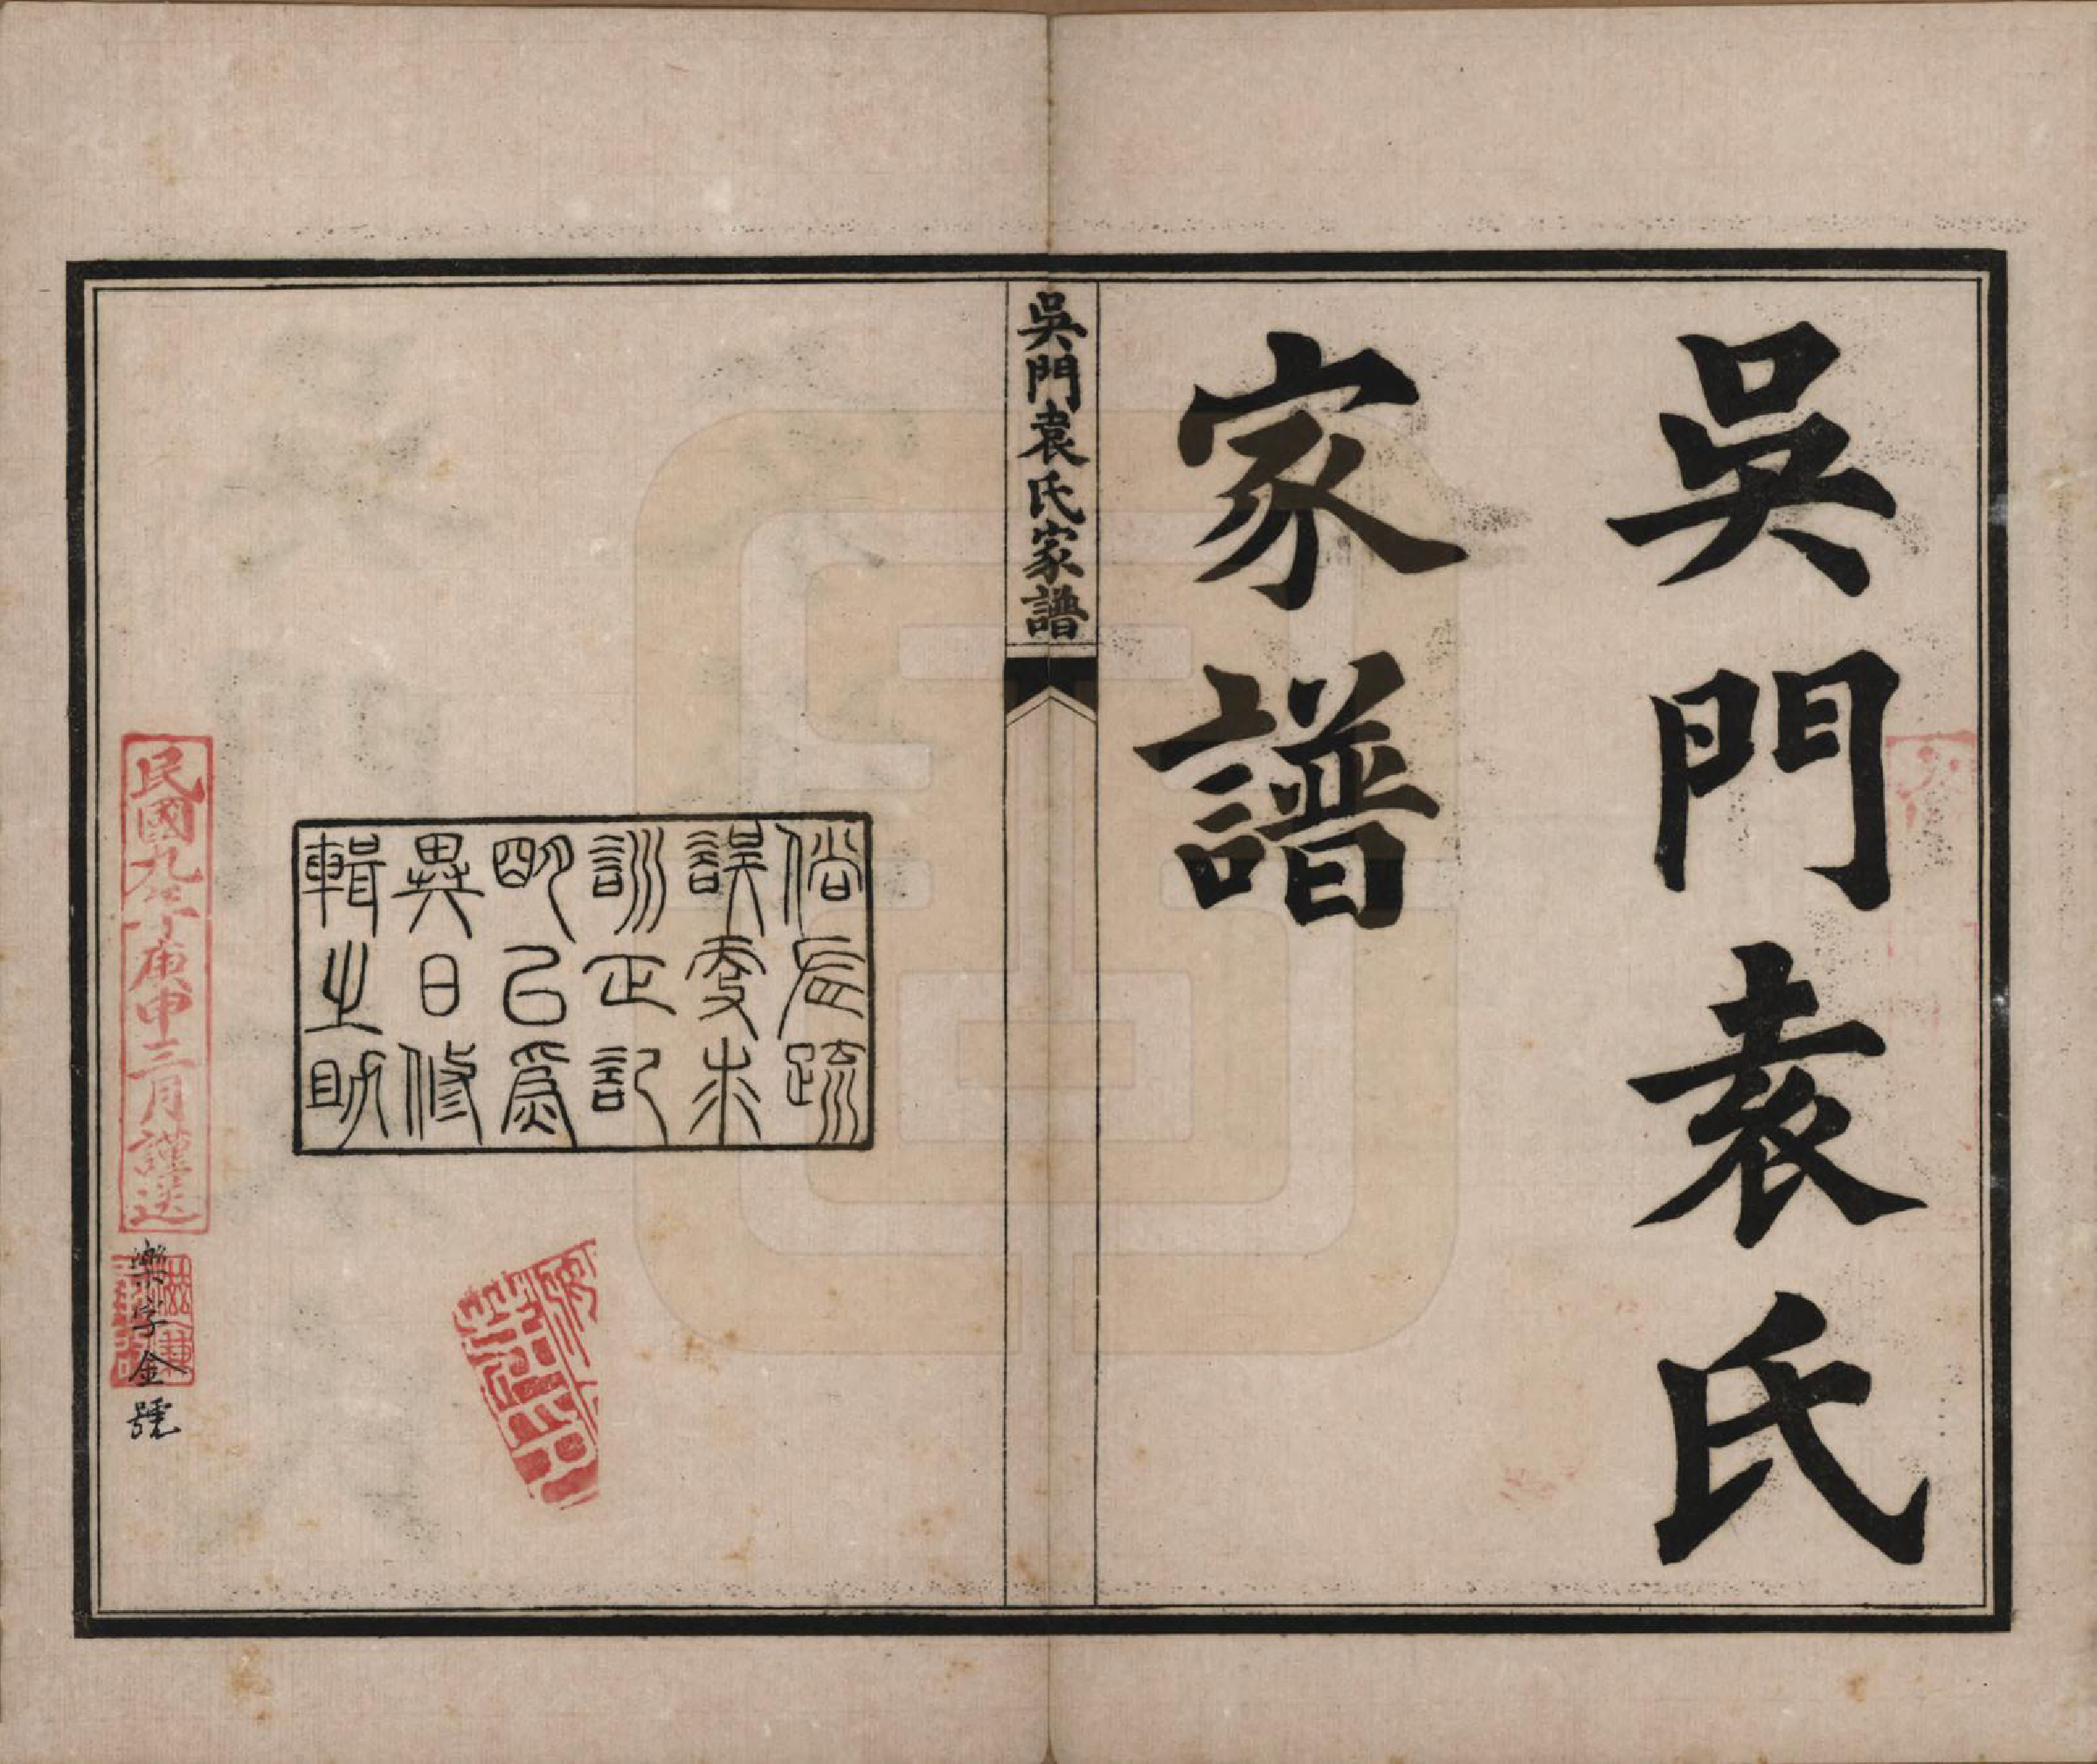 吳門袁氏
家譜
吳門袁氏家譜
誤
訓正記
明已為
異日修
輯之助
民國九年庚申三月謹送
樂字金號